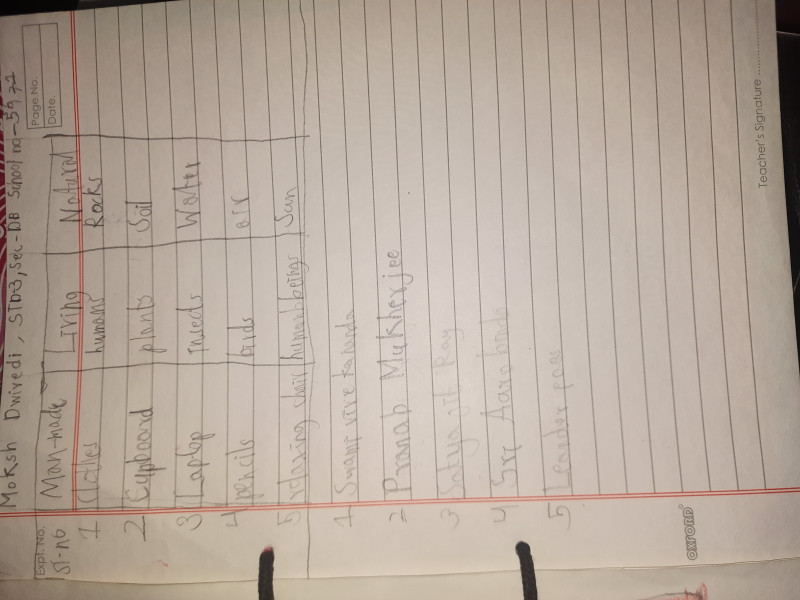 Moksh Dwivedi, STD-3, Sec-DB School no-5972
Page No.
Date.
Expt. No.
Sr. no Man-made Living Natural
1 Clothes humans Rocks
2 Cupboard plants Soil
3 Laptop insects Water
4 pencils birds air
5 relaxing chair human beings Sun
1 Swami vivekananda
2 Pranab Mukherjee
3 Satya jit Ray
4 Sri Aurobindo
5 Leander paes
OXFORD
Teacher's Signature